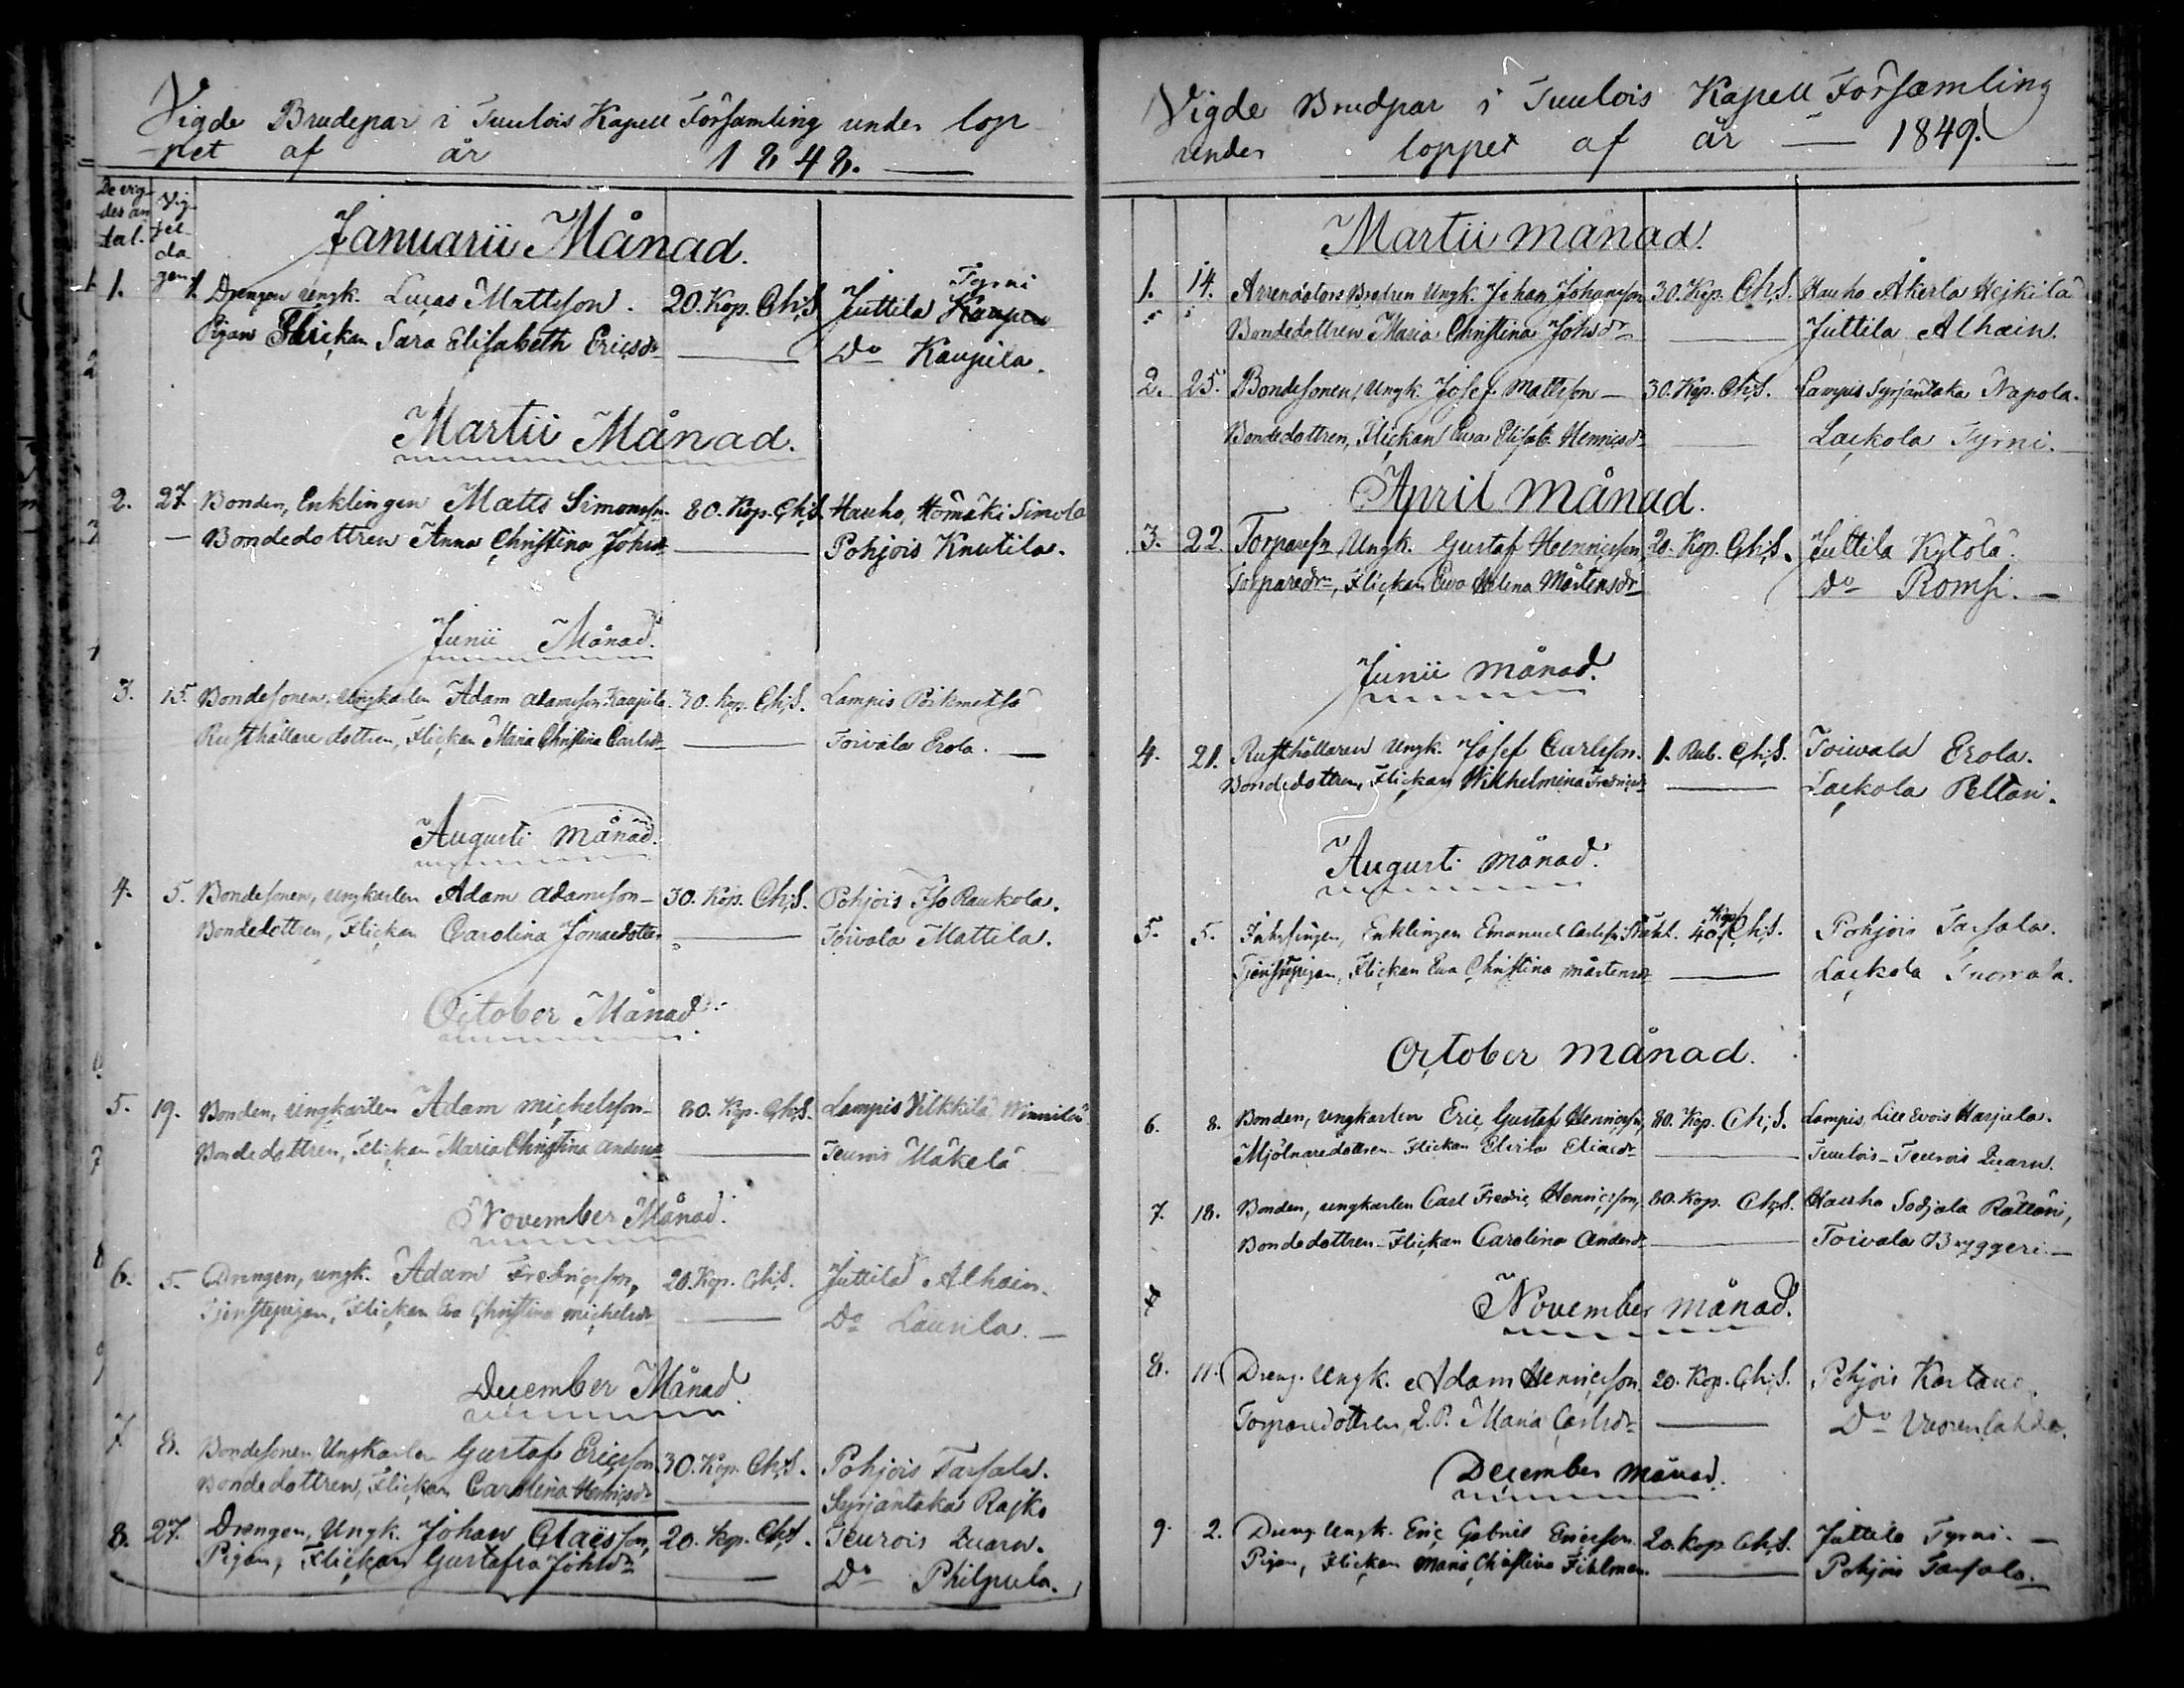 Vigde Brudepar i Tuulois Kapell Församling under lop
-pet af år 1848.
De vig-
des an
tal.
Vig-
sel
da
gen
Januarii Månad.
1. 1. Drengen ungk. Lucas Mattsson. 20. Kop. Ch;S. Juttila Tyrni
Pigan Flickan Sara Elisabeth Ericsdr Do Kaupila.
Martii Månad.
2. 27. Bonden, Enklingen Matts Simonsson 80. Kop. Ch;S. Hauho, Hömäki Simola
Bondedottren Anna Christina Johsdr Pohjois Knutila.
Junii Månad.
3. 15. Bondesonen, ungkarlen Adam Adamsson Kaupila. 30. Kop. Ch;S. Lampis
Rusthållare dottren, Flickan Maria Christina Carlsdr Toivala Erola.
Augusti månad.
4. 5. Bondesonen, ungkarlen Adam Adamsson 30. Kop. Ch;S. Pohjois Iso Raukola.
Bondedottren, Flickan Carolina Jonaedotter Toivala Mattila.
October Månad.
5. 19. Bonden, ungkarlen Adam Michelsson 80. Kop. Ch;S. Lampis Vilkkilä Winnilä
Bondedottren, Flickan Maria Christina Andersdr Teurois Mäkelä
November Månad.
6. 5. Drengen, ungk. Adam Fredricsson, 20. Kop. Ch;S. Juttila Alhain.
Tjenstepigan, Flickan Eva Christina Michelsdr Do Laurila.
December Månad.
7. 8. Bondesonen Ungkarlen Gustaf Ericsson 30. Kop. Ch;S. Pohjois Tarsala.
Bondedottren, Flickan Carolina Henricsdr Syrjäntaka Rajko
8. 27. Drengen, Ungk. Johan Claësson, 20. Kop. Ch;S. Teurois Quarn.
Pigan, Flickan Gustafva Johsdr Do Philpula.
Vigde Brudpar i Tuulois Kapell Församling
under loppet af år — 1849.
Martii månad.
1. 14. Arrendators Brodren Ungk. Johan Johansson 30. Kop. Ch;S. Hauho Åkerla Hejkilä
Bondedottren Maria Christina Johsdr Juttila Alhain.
2. 25. Bondesonen, Ungk. Josef Mattsson 30. Kop. Ch;S. Lampis Syrjäntaka Napola.
Bondedottren, Flickan Ewa Elisab. Henricsdr Lackola Tyrni.
April månad.
3. 22 Torparesn, Ungk. Gustaf Henricsson, 20. Kop. Ch;S. Juttila Kytölä.
Torparedr, Flickan Ewa Helena Mårtensdr Do Romsi.
Junii månad.
4. 21. Rusthållaren Ungk. Josef Carlsson. 1. Rub. Ch;S. Toivala Erola.
Bondedottren, Flickan Wilhelmina Fredricsdr Lackola Peltari.
Augusti månad.
5. 5. Enklingen Emanuel Carlsson Ståhl. 40 Kop. Ch;S. Pohjois Tarsala.
Tjenstepigan, Flickan Eva Christina Mårtensdr Lackola Tuomala.
October månad.
6. 8. Bonden, ungkarlen Eric Gustaf Henricsson, 80. Kop. Ch;S. Lampis, Lill Evois Harjula.
Mjölnaredottren Flickan Elvira Eliaedr Tuulois - Teurois Quarn.
7. 18. Bonden, ungkarlen Carl Fredric Henricsson, 80. Kop. Ch;S. Hauho Sodjala Rättäri,
Bondedottren - Flickan Carolina Andersdr Toivala Bryggeri.
November månad.
8. 11. Dreng. Ungk. Adam Henricsson 20. Kop. Ch;S. Pohjois Kartano.
Torparedottren, Q. P. Maria Carlsdr Do Vuorenlahda.
December månad.
9. 2. Dreng. Ungk. Eric Gabriel Ericsson 20. Kop. Ch;S. Juttila Tyrni.
Pigan, Flickan Maria Christina Fihlman. Pohjois Tarsala.